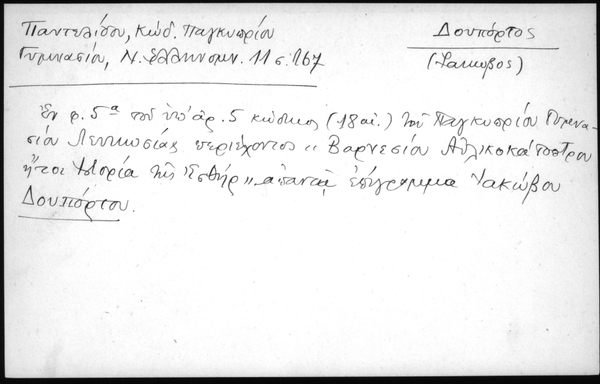 Παντελίδου, Κώδ. Παγκυπρίου
Γυμνασίου, Ν. Ἑλληνομν. 11 σ. 167
Δουπόρτος
(Ἰάκωβος)
Ἐν φ. 5α τοῦ ὑπ' ἀρ. 5 κώδικος (18 αἰ.) τοῦ Παγκυπρίου Γυμνα-
σίου Λευκωσίας περιέχοντος „ Βαρνεσίου Αὐλικοκάτοπτρον
ἤτοι Ἱστορία τῆς Ἐσθήρ „ ἀπαντᾷ ἐπίγραμμα Ἰακώβου
Δουπόρτου.